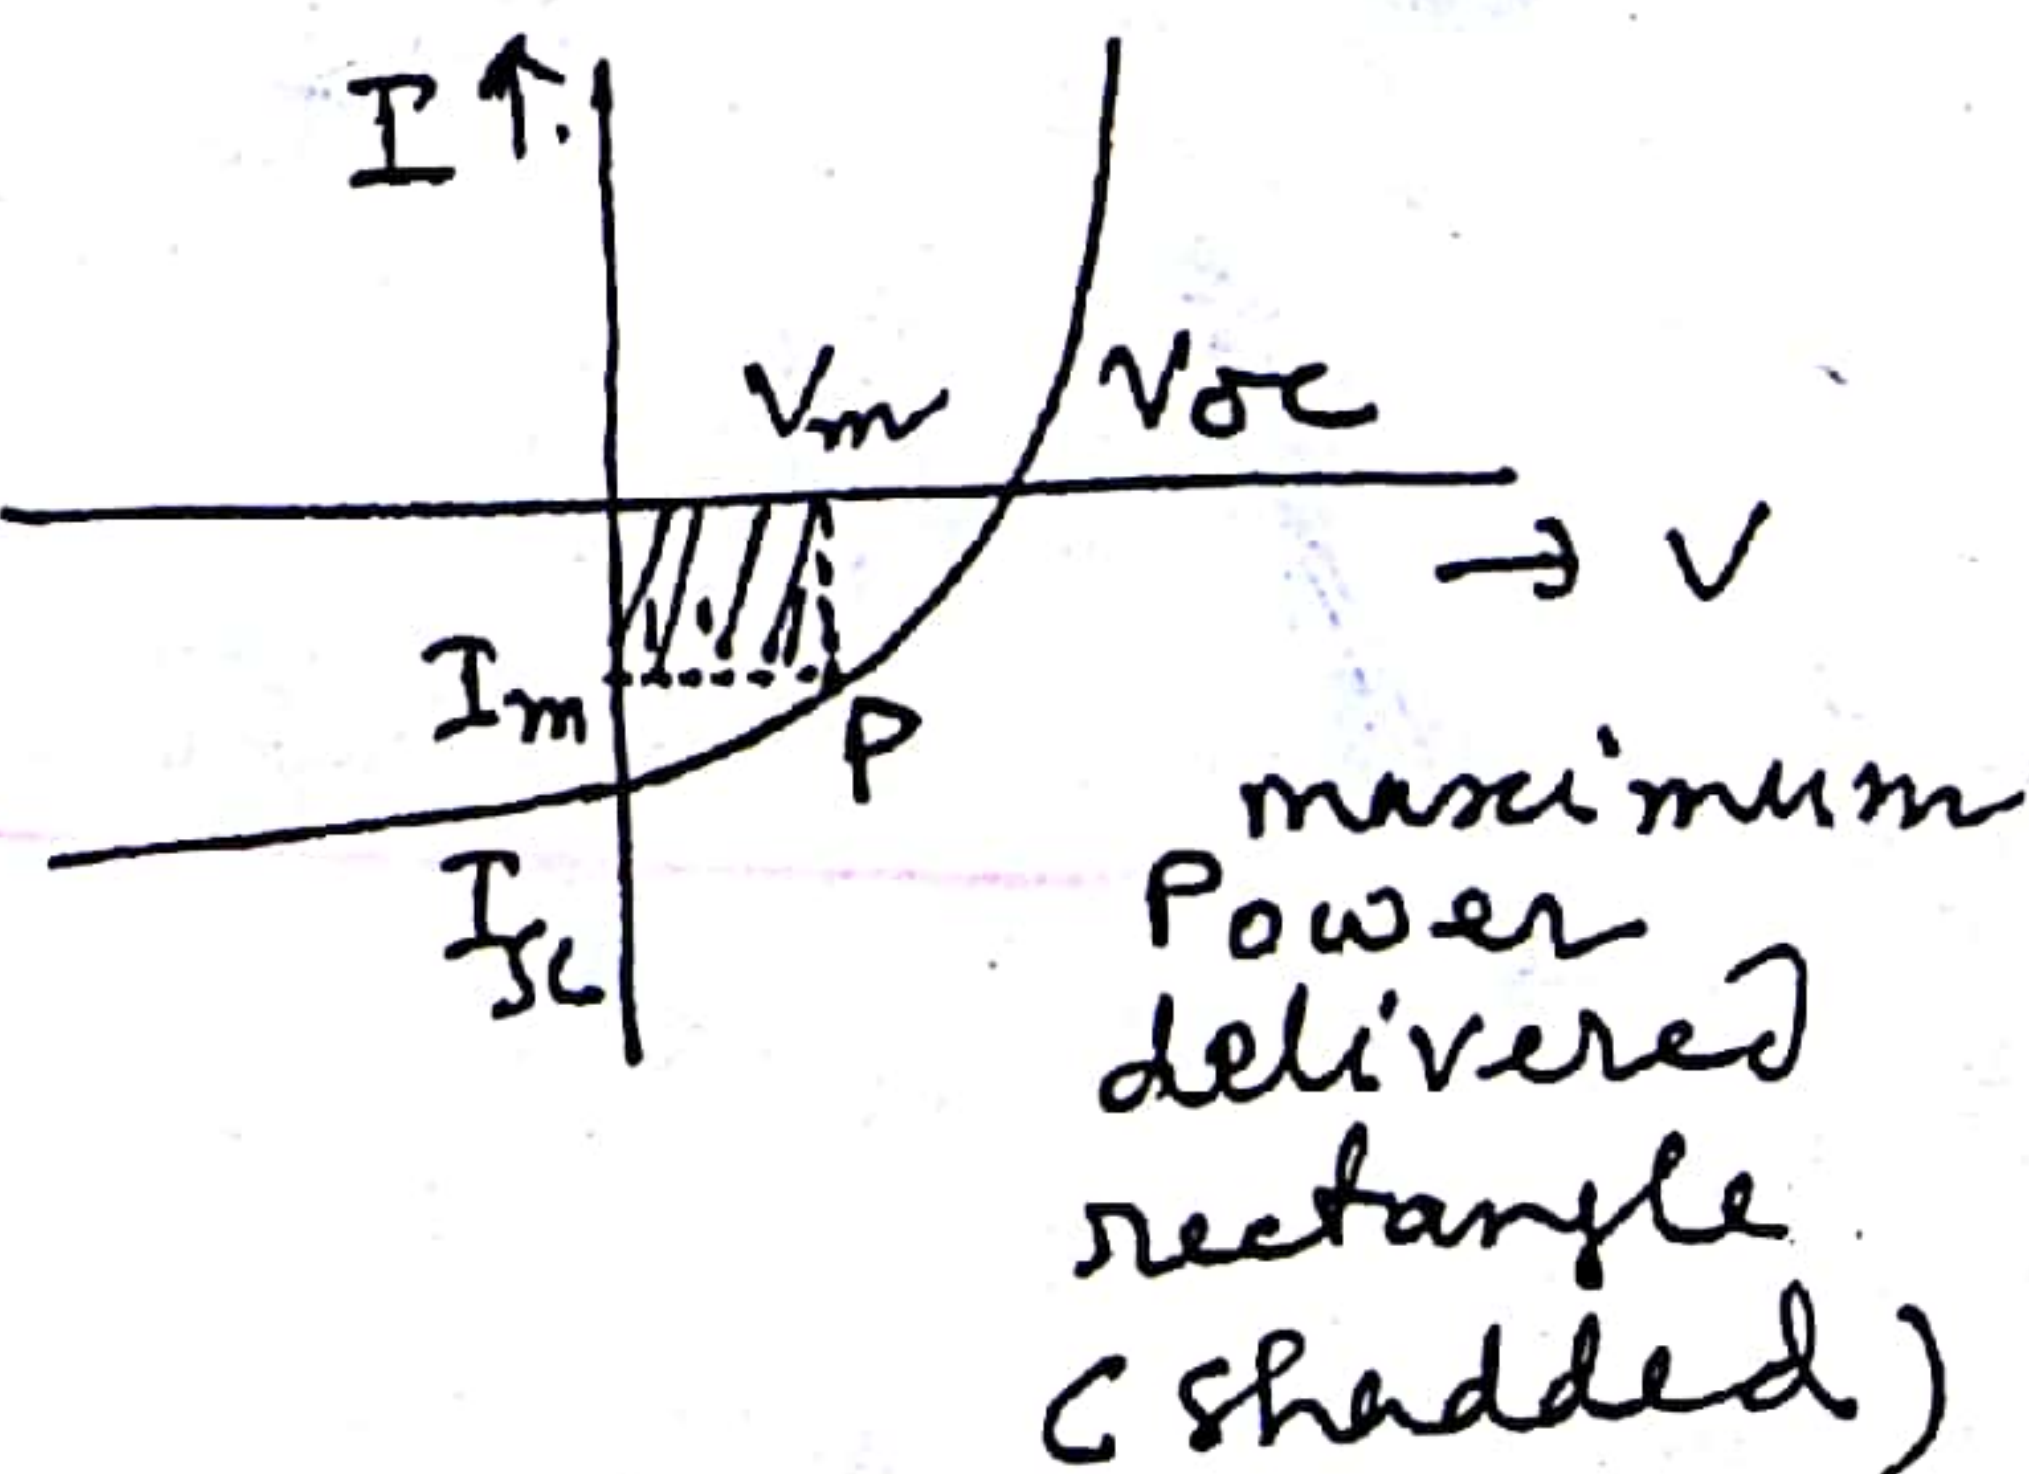 I ↑
Vm
Voc
→ V
Im
P
Isc
maximum
Power
delivered
rectangle
(shadded)